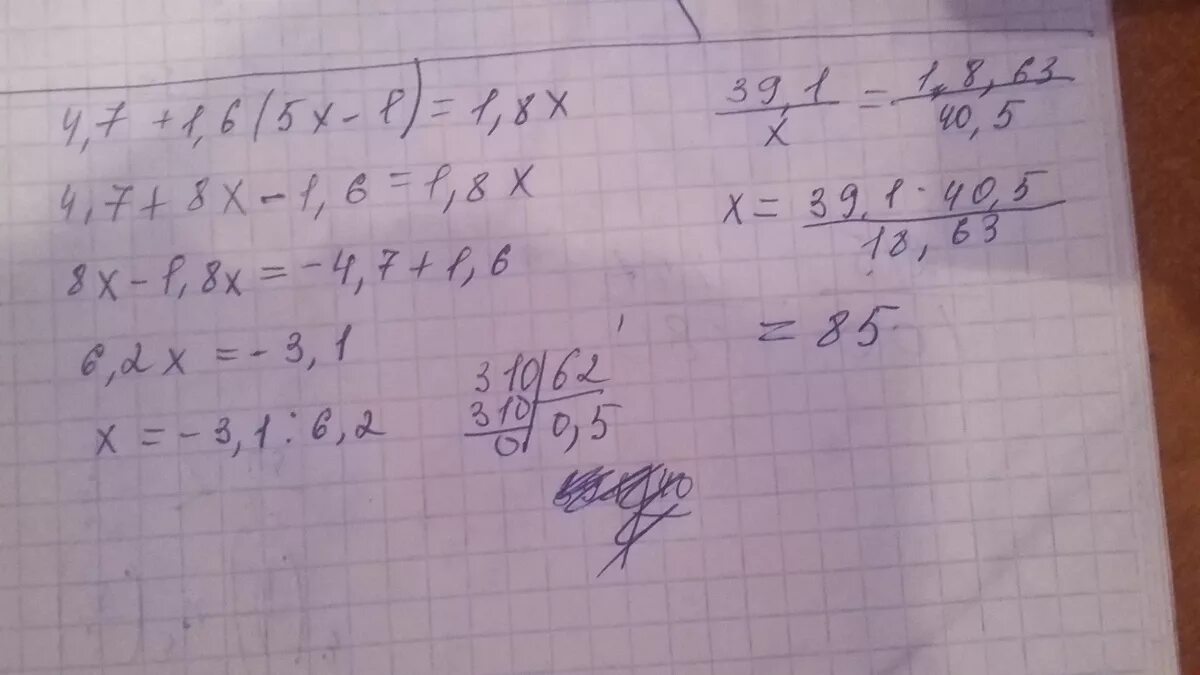 4,7 + 1,6 (5x - 1) = 1,8x
4,7 + 8x - 1,6 = 1,8x
8x - 1,8x = - 4,7 + 1,6
6,2x = - 3,1
x = - 3,1 : 6,2
310 | 62
310 | 0,5
0
39,1 / x = 18,63 / 40,5
x = 39,1 · 40,5 / 18,63
= 85